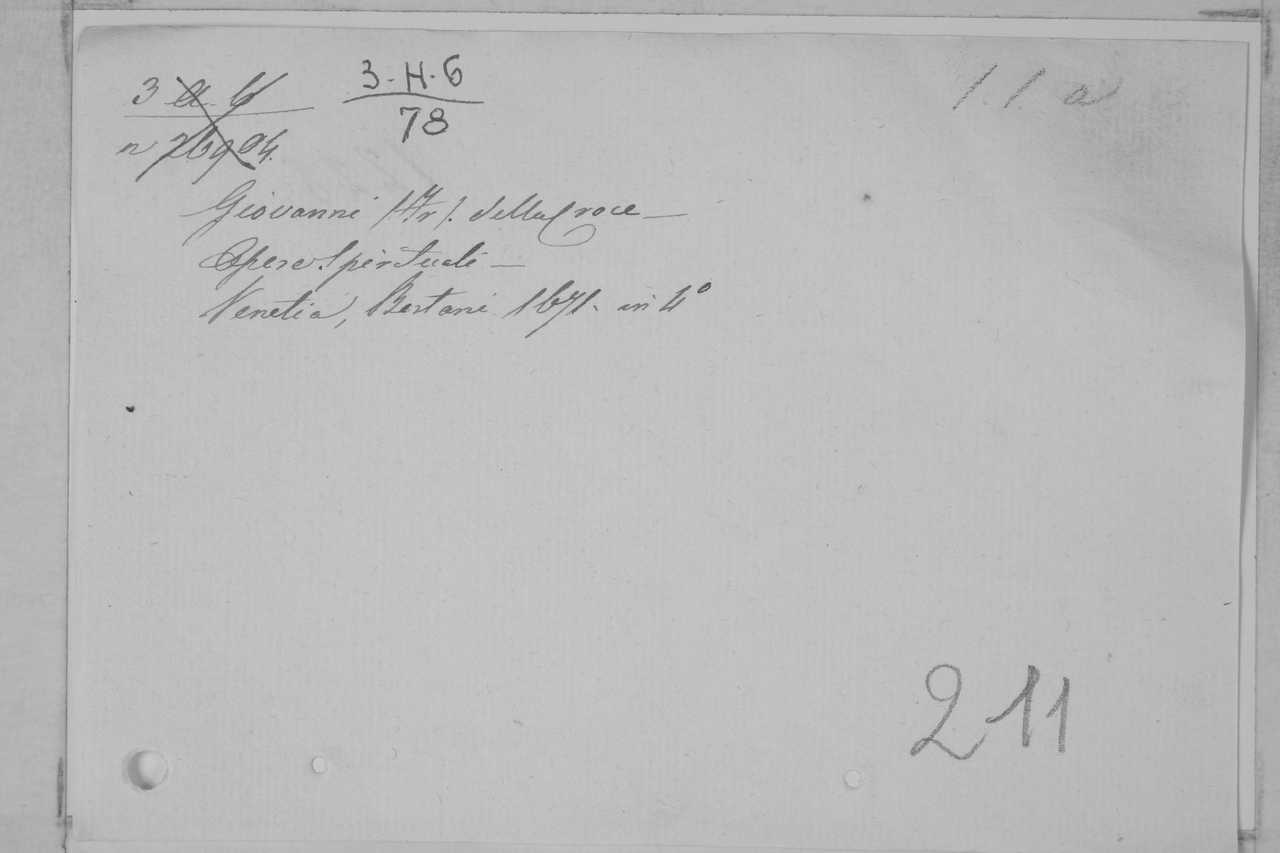 3-H-6
78
1. 1. a
Giovanni (Fr). della Croce —
Opere Spirituali —
Venetia, Bertani 1671. in 4°
211